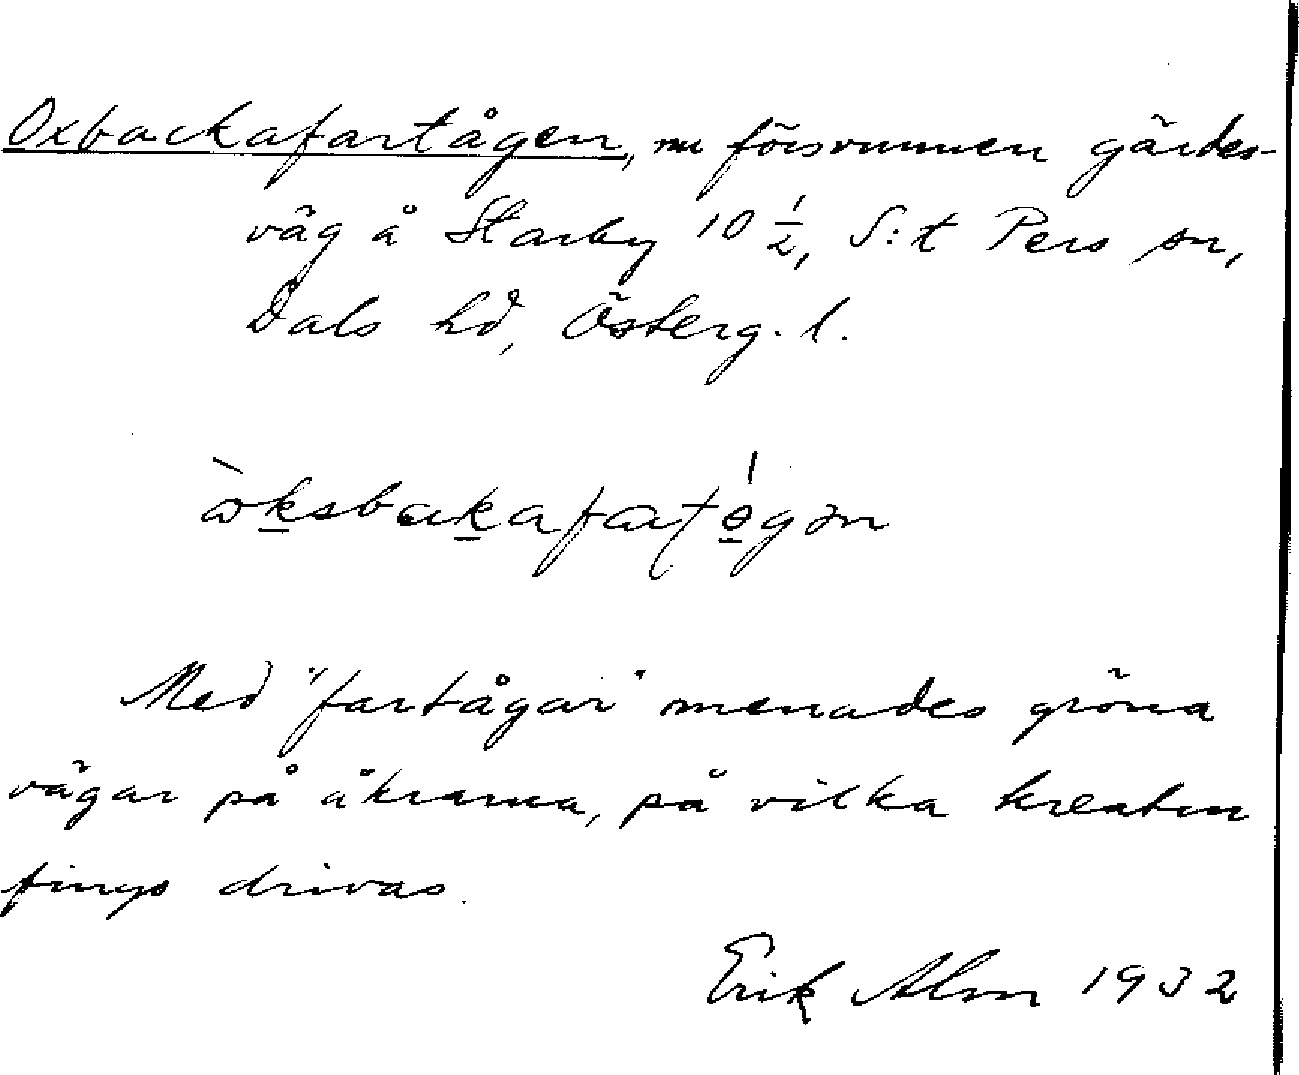 Oxbackafartågen, nu försvunnen gärdes-
väg å Starby 10 1/2, S:t Pers sn,
Dals hd, Österg. l.
Med "fartågar" menades gröna
vägar på åkrarna, på vilka kreatur
fingo drivas.
Erik Alm 1932